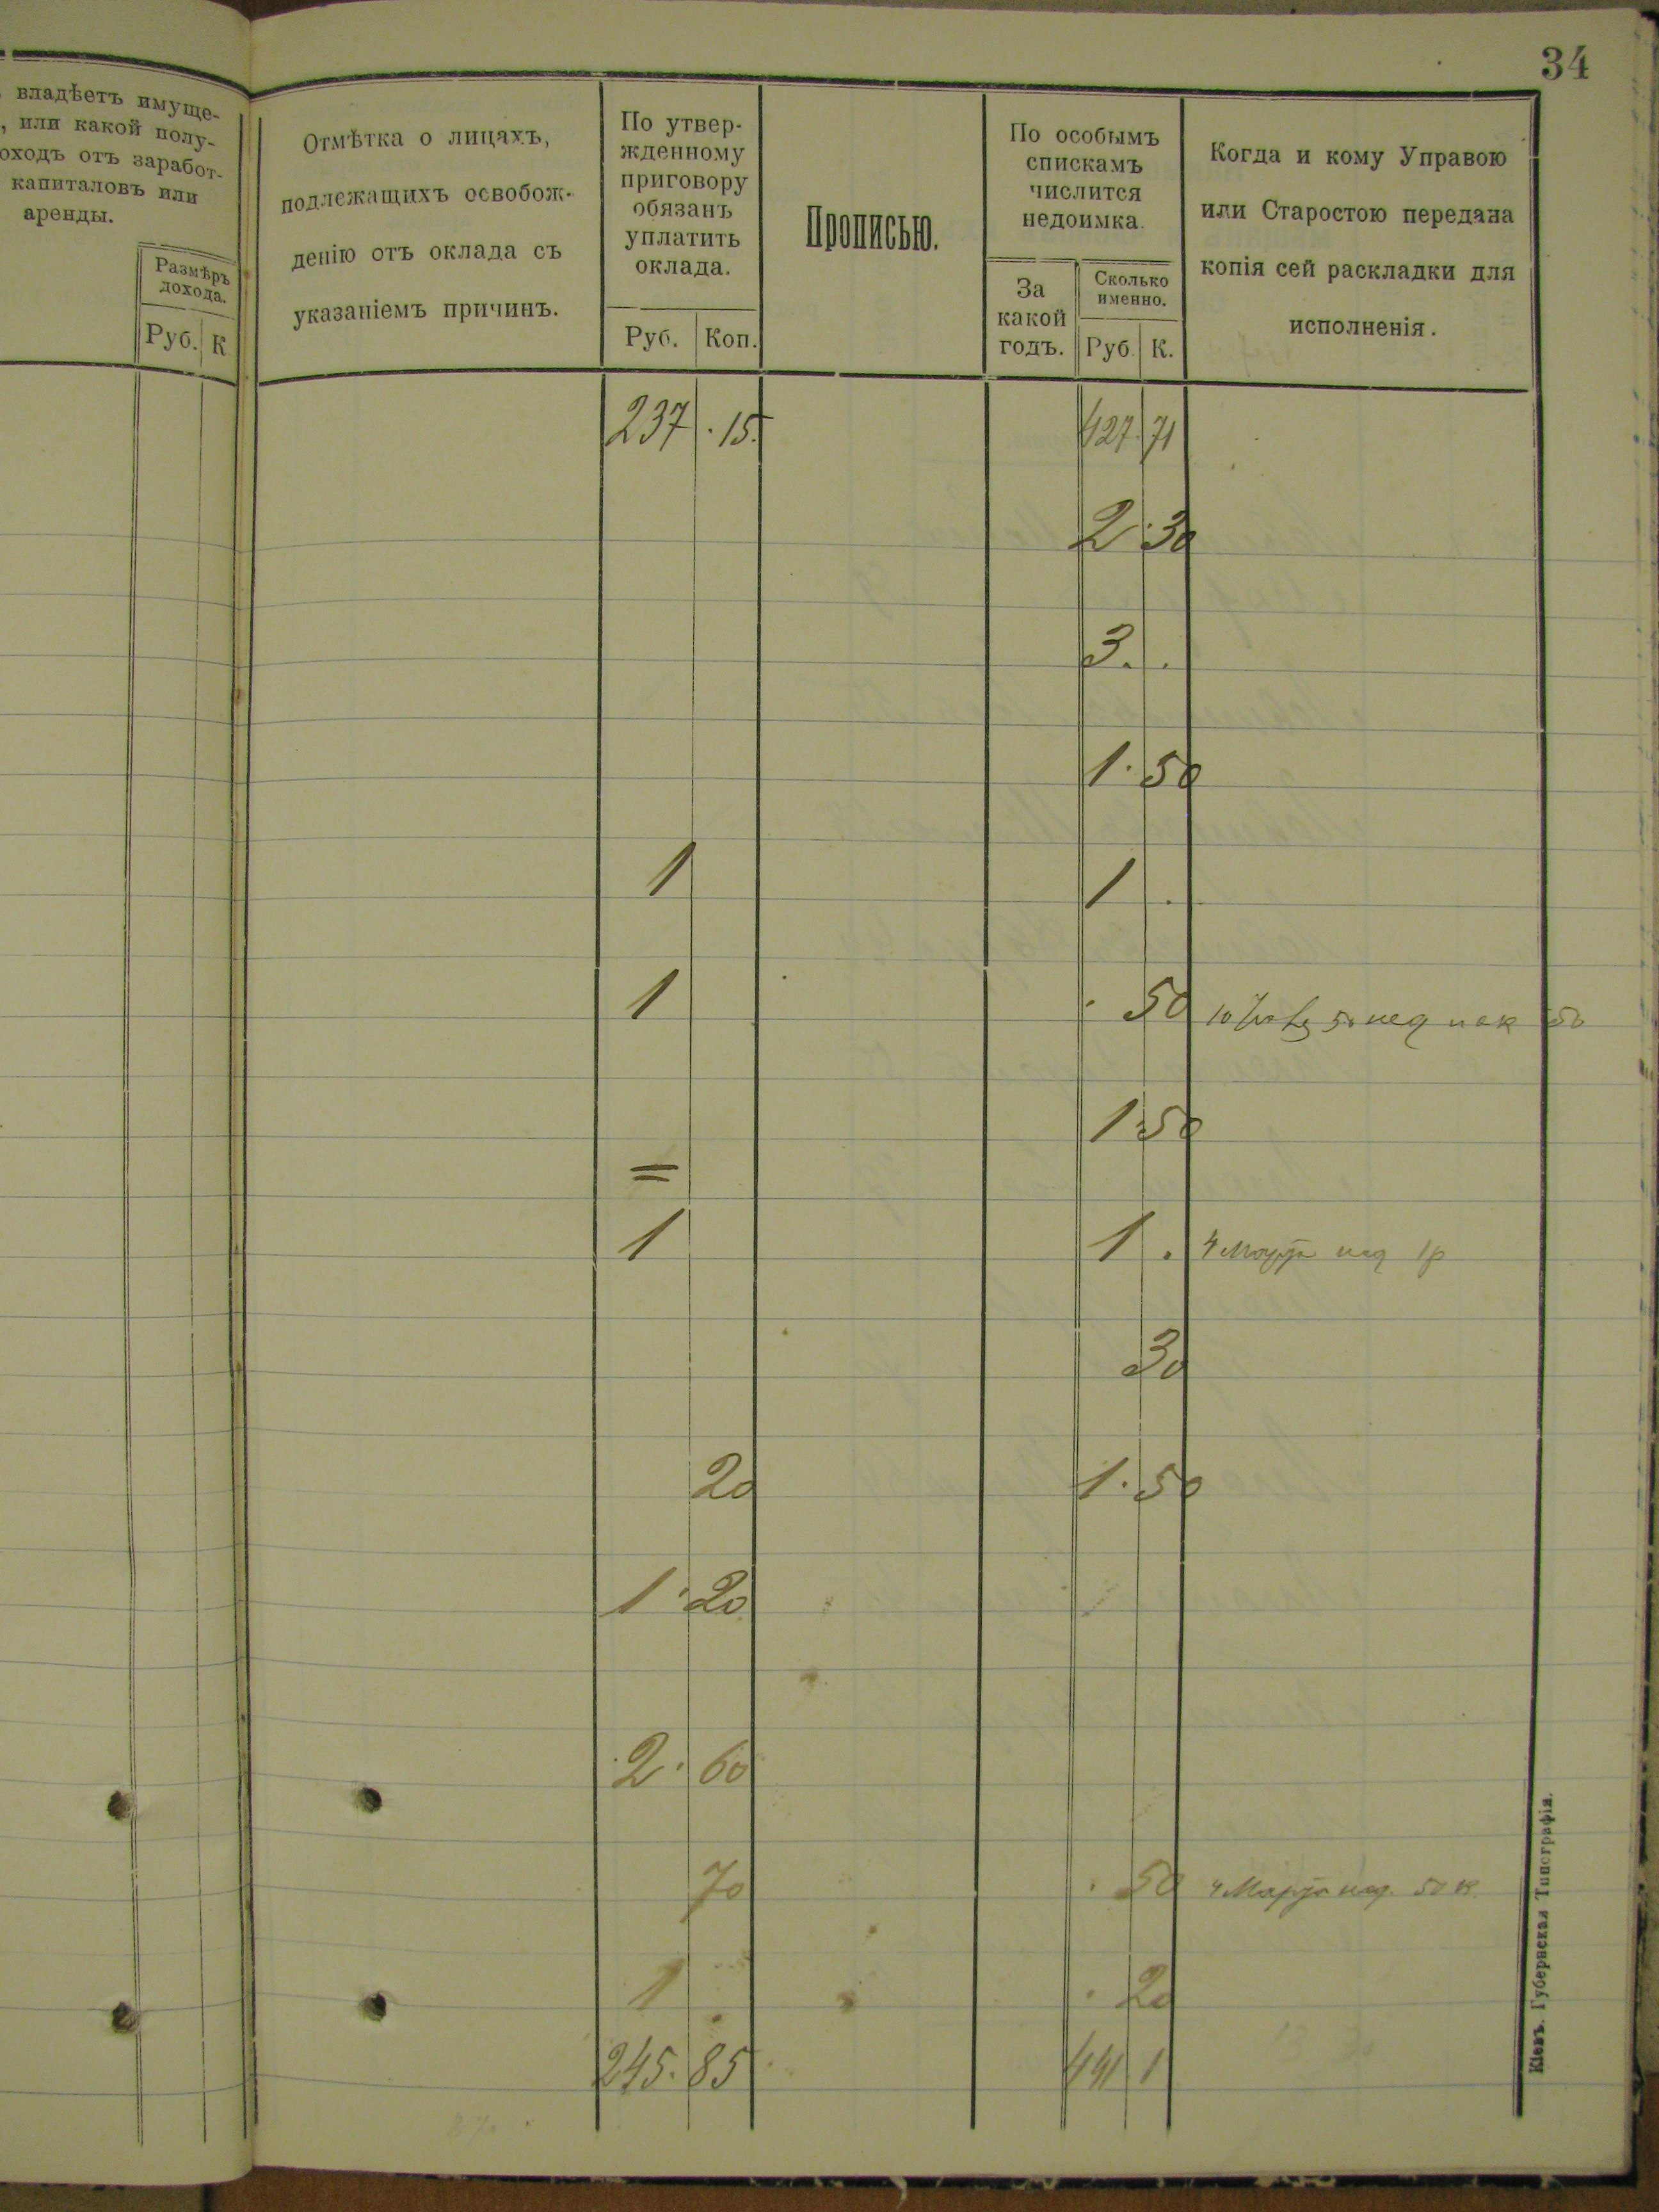 34
владѣетъ имуще-
, или какой полу-
оходъ отъ заработ-
капиталовъ или
аренды.
Размѣръ
дохода.
Руб. К
Отмѣтка о лицахъ,
подлежащихъ освобож-
денію отъ оклада съ
указаніемъ причинъ.
По утвер-
жденному
приговору
обязанъ
уплатить
оклада.
Руб. Коп.
Прописью.
По особымъ
спискамъ
числится
недоимка.
За
какой
годъ.
Сколько
именно.
Руб. К.
Когда и кому Управою
или Старостою передана
копія сей раскладки для
исполненія.
237 . 15. 427. 71
2 . 30
3. .
1 . 50
1 1 .
1 . 50 10 50 нед 50
1 . 50
=
1 1 . 4 Марта нед 1р
30
20 1 . 50
1 . 20
. 2 . 60
70 . 50 4 Марта нед. 50 к.
1 . . 20
245. 85 441. 1
Кіевъ. Губернская Типографія.